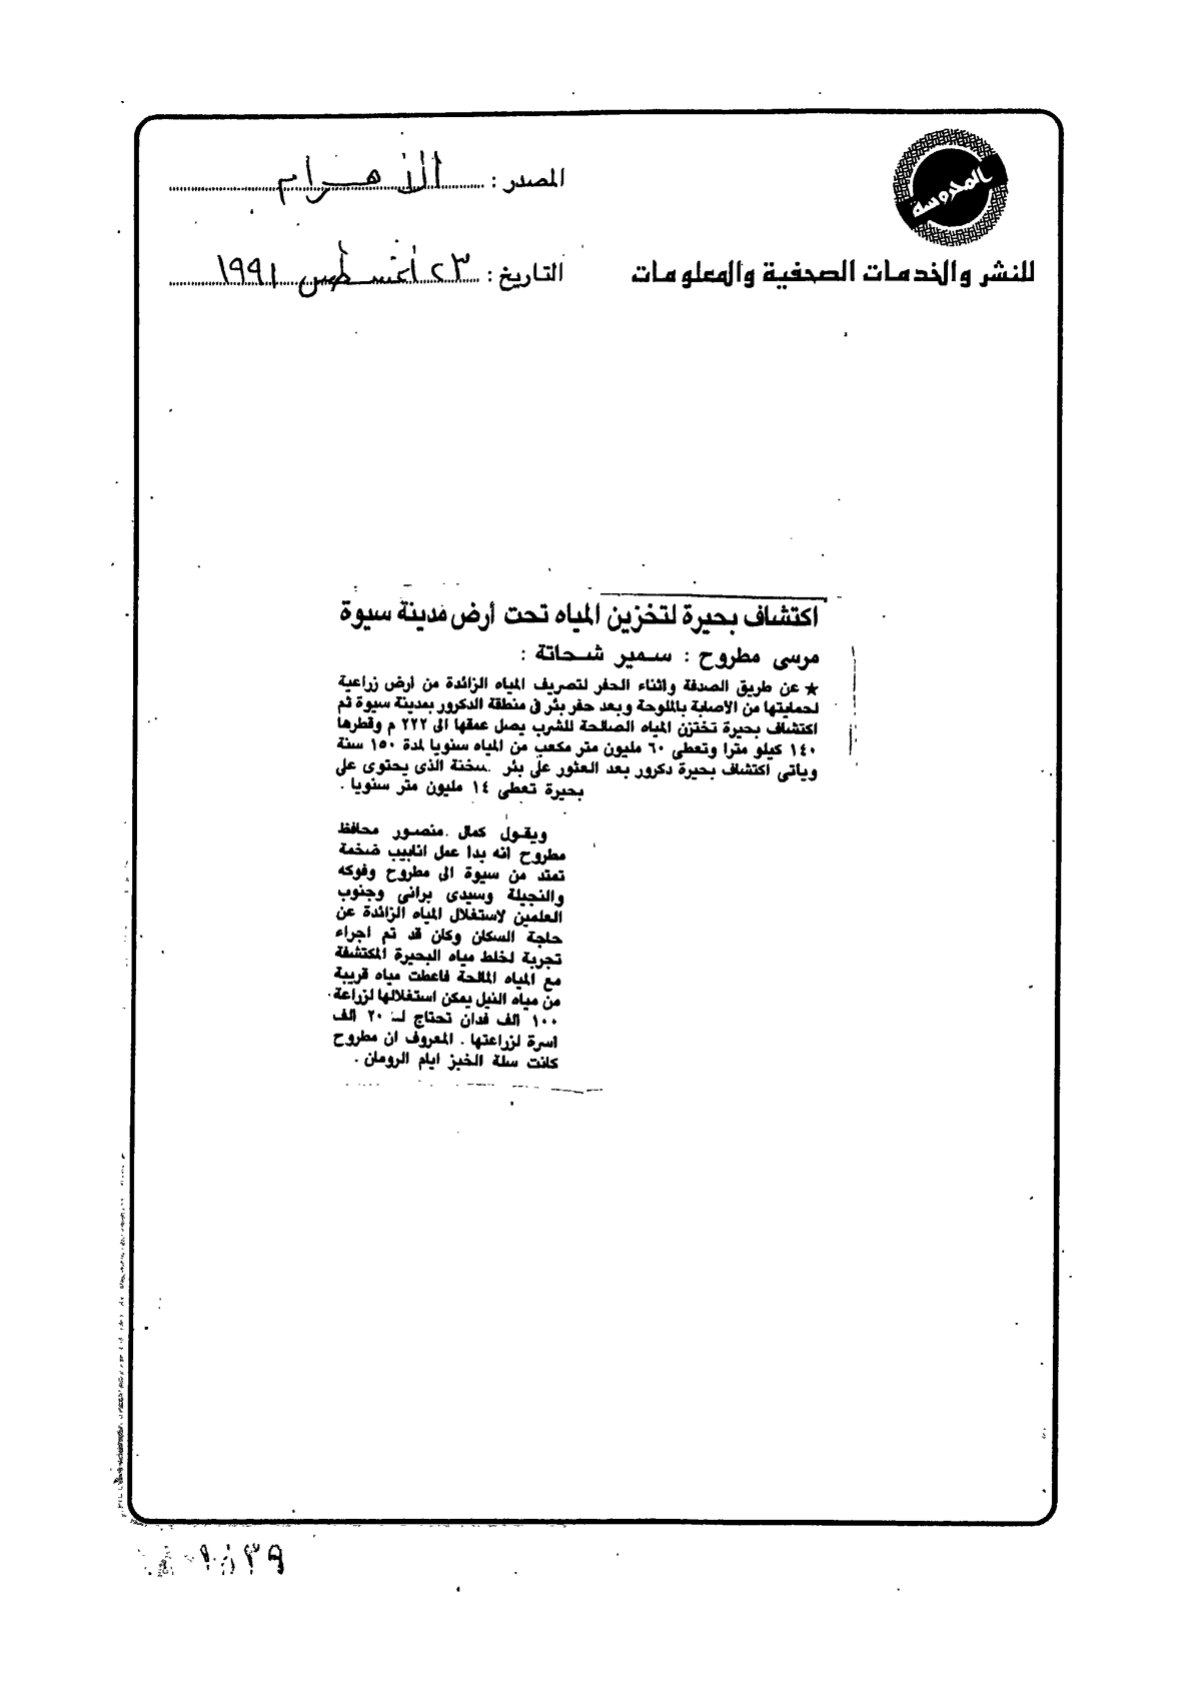 المحروسة
للنشر والخدمات الصحفية والمعلومات
المصدر : الأهرام
التاريخ : ٢٣ أغسطس ١٩٩١
اكتشاف بحيرة لتخزين المياه تحت أرض مدينة سيوة
مرسى مطروح : سمير شحاتة :
★ عن طريق الصدفة واثناء الحفر لتصريف المياه الزائدة من ارض زراعية
لحمايتها من الاصابة بالملوحة وبعد حفر بئر فى منطقة الدكرور بمدينة سيوة تم
اكتشاف بحيرة تختزن المياه الصالحة للشرب يصل عمقها الى ٢٢٢ م وقطرها
١٤٠ كيلو مترا وتعطى ٦٠ مليون متر مكعب من المياه سنويا لمدة ١٥٠ سنة
وياتى اكتشاف بحيرة دكرور بعد العثور على بئر سخنة الذى يحتوى على
بحيرة تعطى ١٤ مليون متر سنويا .
ويقول كمال منصور محافظ
مطروح انه بدا عمل انابيب ضخمة
تمتد من سيوة الى مطروح وفوكه
والنجيلة وسيدى برانى وجنوب
العلمين لاستغلال المياه الزائدة عن
حاجة السكان وكان قد تم اجراء
تجربة لخلط مياه البحيرة المكتشفة
مع المياه المالحة فاعطت مياه قريبة
من مياه النيل يمكن استغلالها لزراعة
١٠٠ الف فدان تحتاج لـ ٢٠ الف
اسرة لزراعتها . المعروف ان مطروح
كانت سلة الخبز ايام الرومان .